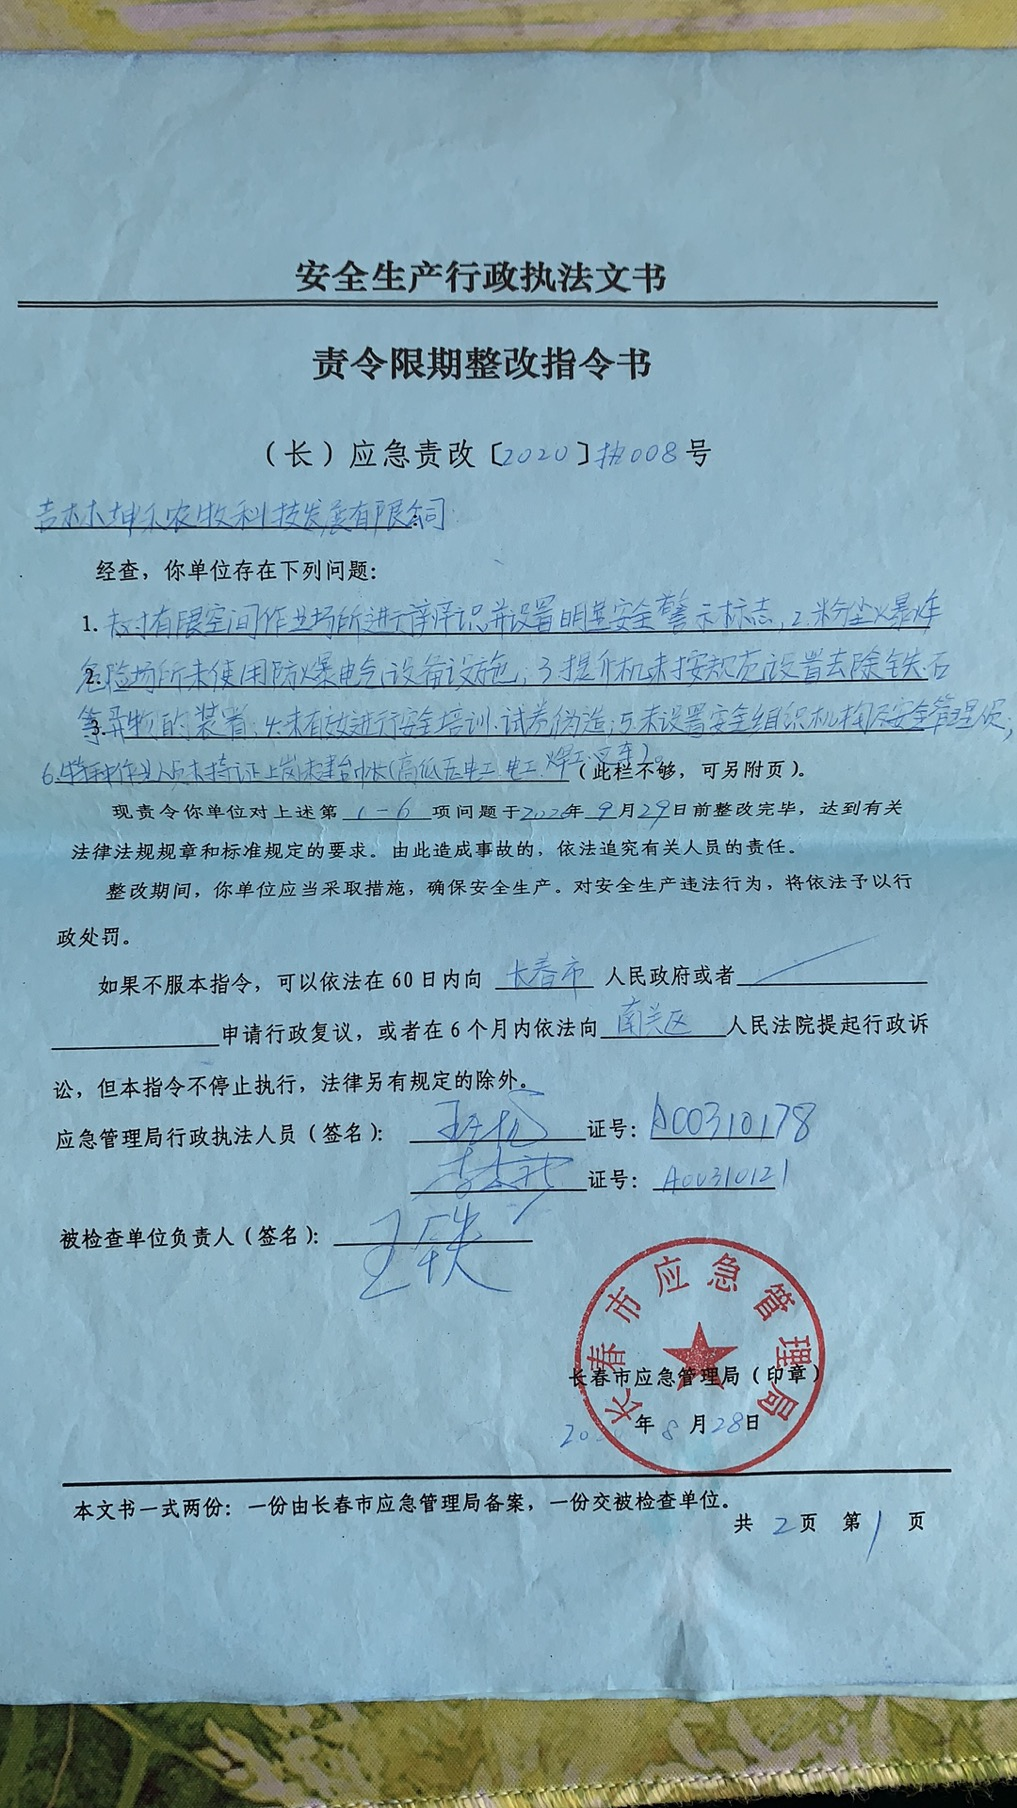 安全生产行政执法文书
责令限期整改指令书
（长）应急责改〔2020〕执008号
吉林坤禾农牧科技发展有限公司
经查，你单位存在下列问题：
1. 未对有限空间作业场所进行辨识并设置明显安全警示标志，2.粉尘爆炸
2. 危险场所未使用防爆电气设备设施，3.提升机未按规范设置去除铁、石
3. 等异物的装置；4.未有效进行安全培训、试卷伪造；5.未设置安全组织机构及安全管理员；
6.特种作业人员未持证上岗未建台帐（高低压电工、电工、焊工、叉车）。（此栏不够，可另附页）。
现责令你单位对上述第 1-6 项问题于2020年 9月29日前整改完毕，达到有关
法律法规规章和标准规定的要求。由此造成事故的，依法追究有关人员的责任。
整改期间，你单位应当采取措施，确保安全生产。对安全生产违法行为，将依法予以行
政处罚。
如果不服本指令，可以依法在60日内向 长春市 人民政府或者
申请行政复议，或者在6个月内依法向 南关区 人民法院提起行政诉
讼，但本指令不停止执行，法律另有规定的除外。
应急管理局行政执法人员（签名）： 证号：A00310178
证号：A00310121
被检查单位负责人（签名）：王铁
长春市应急管理局
长春市应急管理局（印章）
2020年8月28日
本文书一式两份：一份由长春市应急管理局备案，一份交被检查单位。
共 2 页 第 1 页